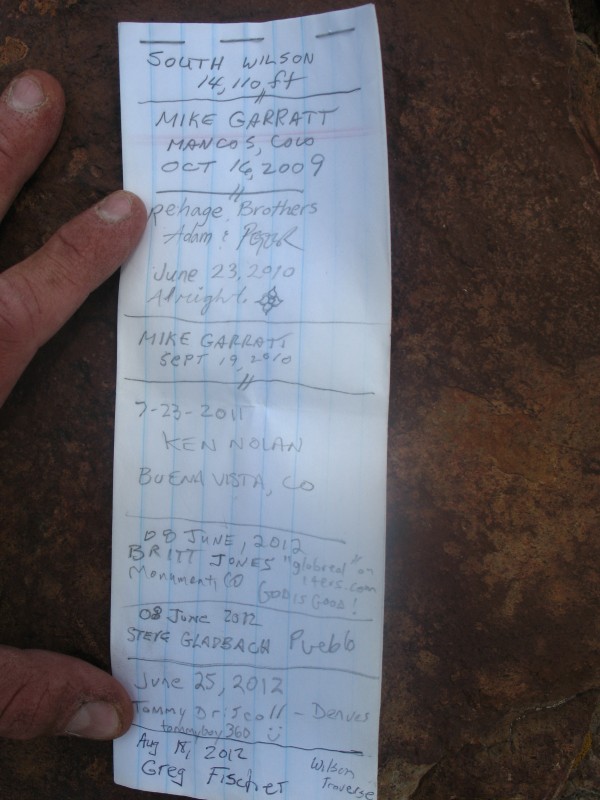 SOUTH WILSON
14,110 ft
MIKE GARRATT
MANCOS, COLO
OCT 16, 2009
pehage Brothers
Adam &
June 23, 2010
Alright.
MIKE GARRATT
SEPT 19, 2010
7-23-2011
KEN NOLAN
BUENA VISTA, CO
08 JUNE, 2012
BRITT JONES "globreal" on
Monument, CO 14ers.com
GOD IS GOOD!
08 JUNE 2012
STEVE GLADBACH Pueblo
June 25, 2012
Tommy Driscoll - Denver
tommyboy360
Aug 18, 2012 Wilson
Greg Fischer Traverse